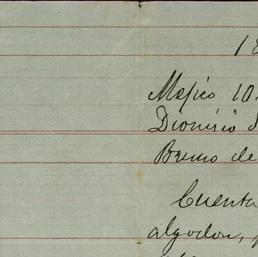 18
Mejico 10
Dionisio
Bravo de
Cuenta
algodon,